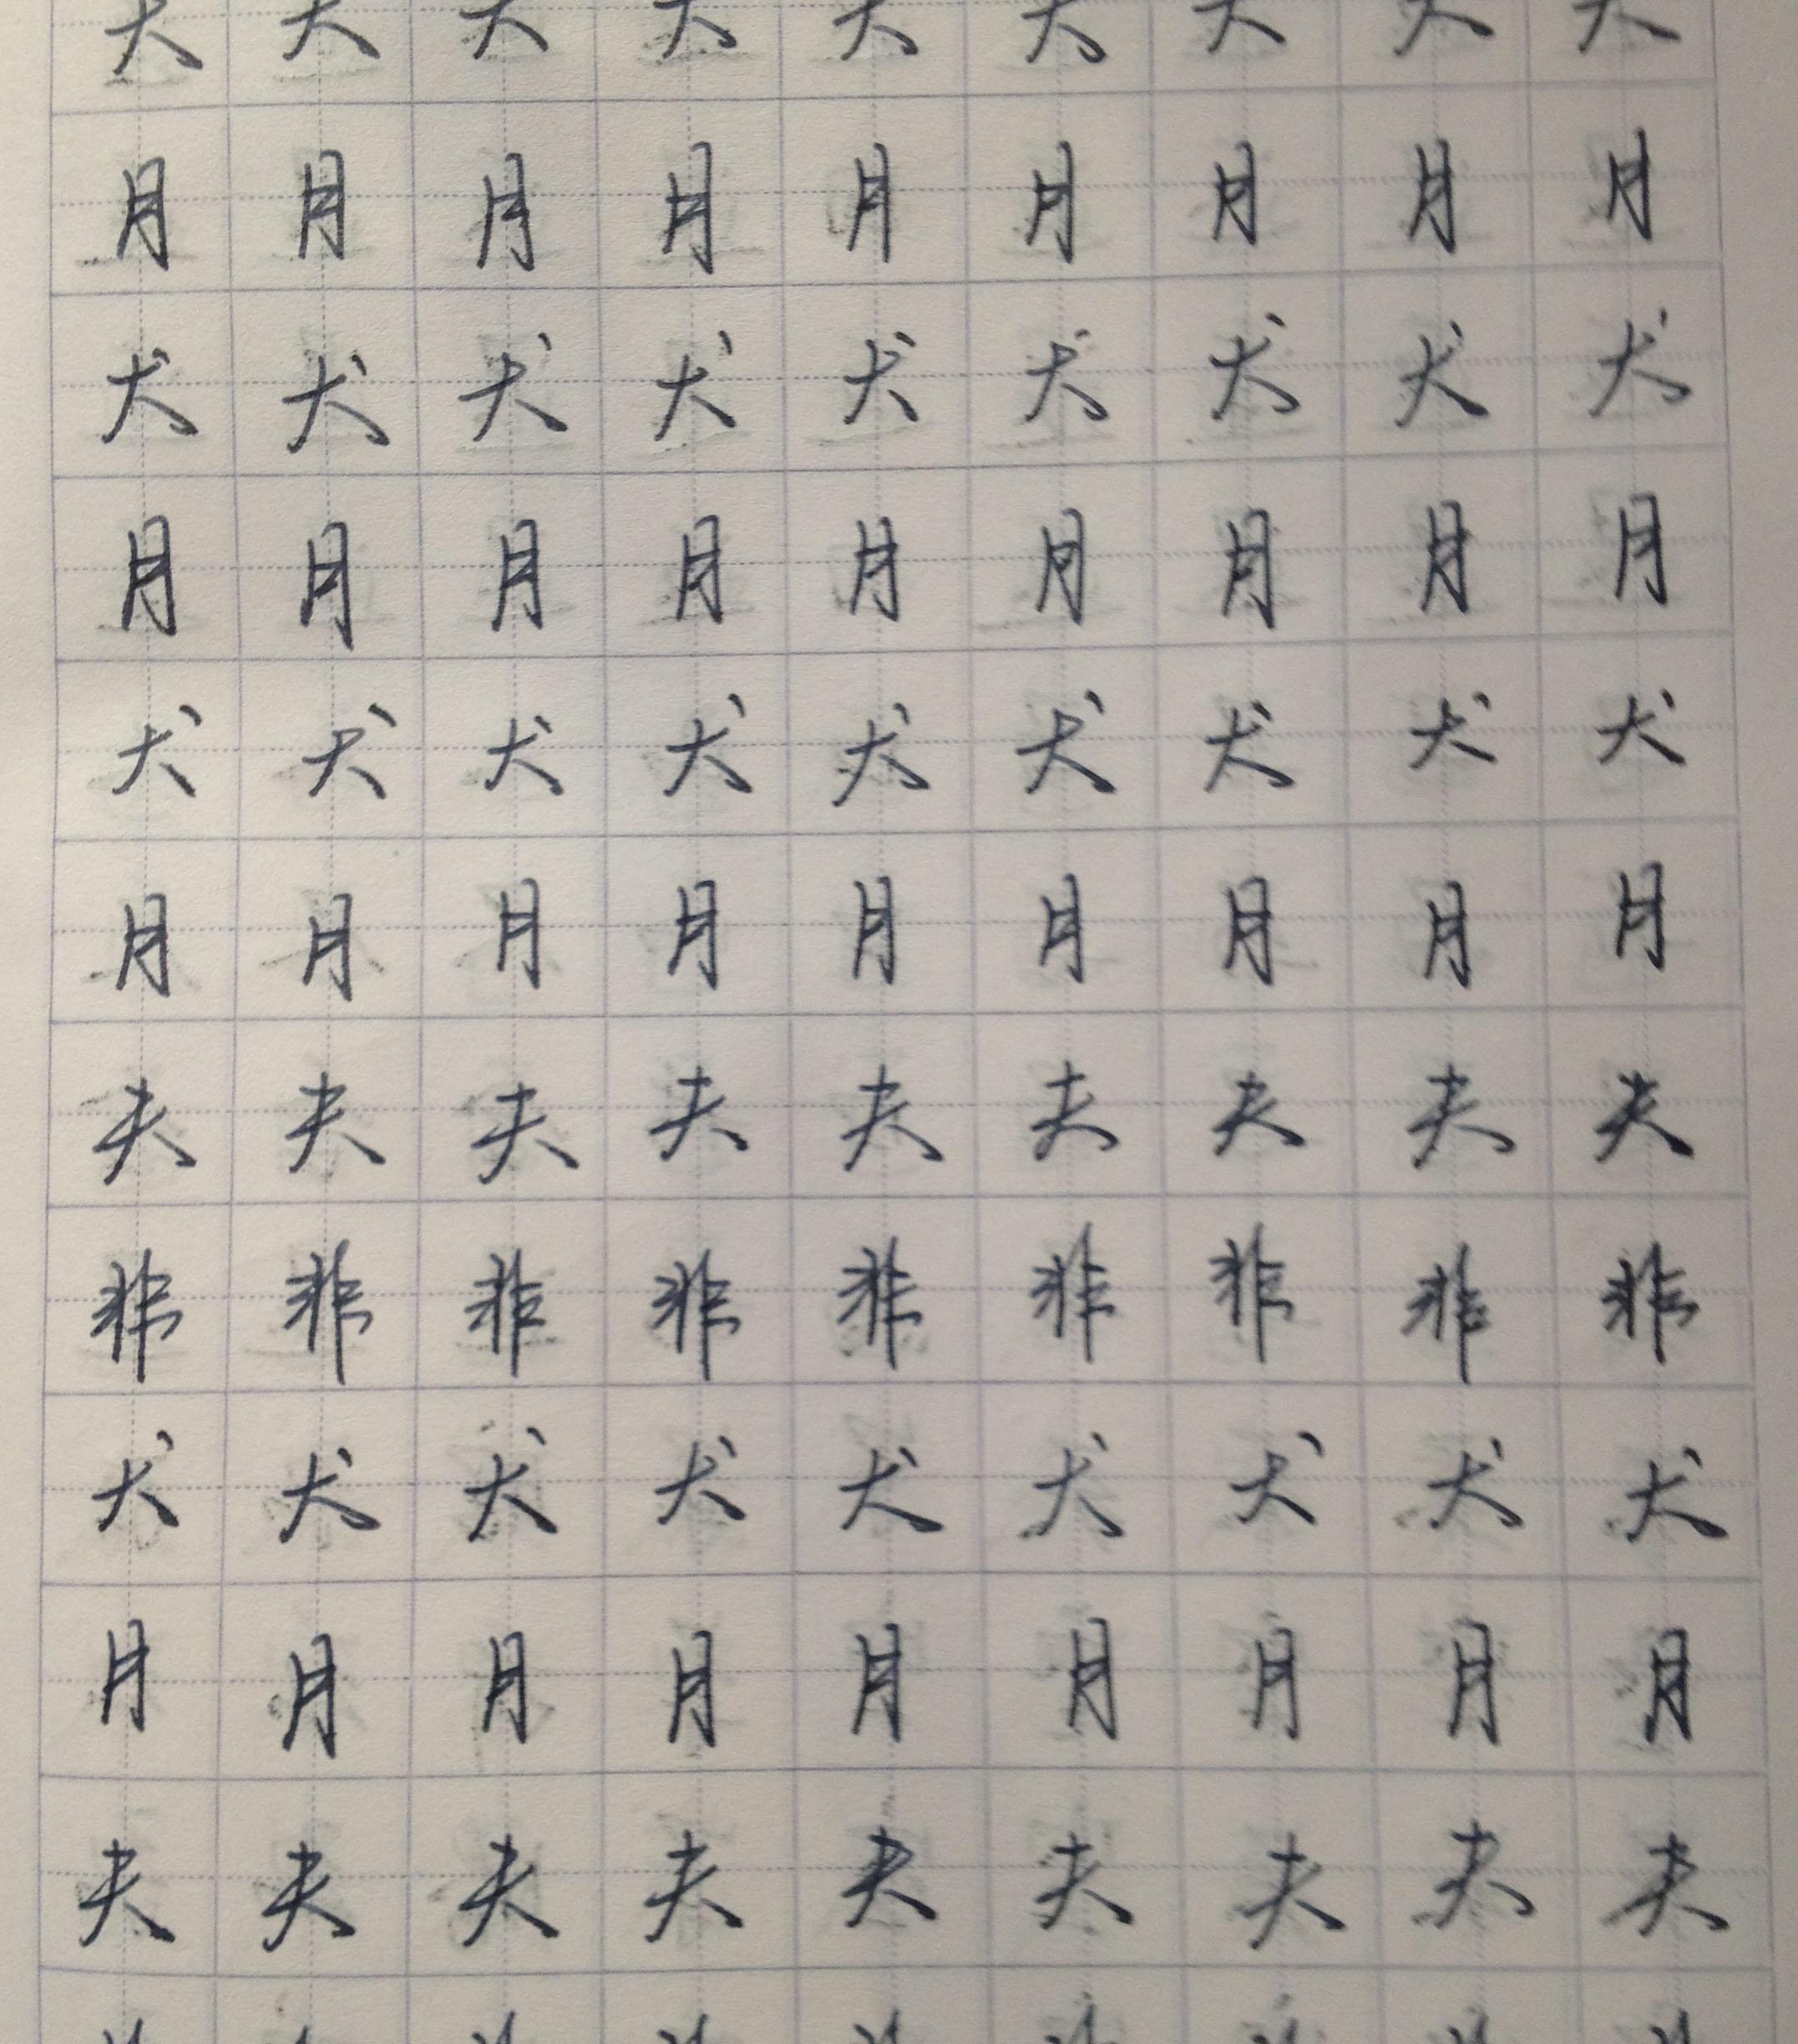 月月月月月月月月月
犬犬犬犬犬犬犬犬犬
月月月月月月月月月
犬犬犬犬犬犬犬犬犬
月月月月月月月月月
夫夫夫夫夫夫夫夫夫
非非非非非非非非非
犬犬犬犬犬犬犬犬犬
月月月月月月月月月
夫夫夫夫夫夫夫夫夫